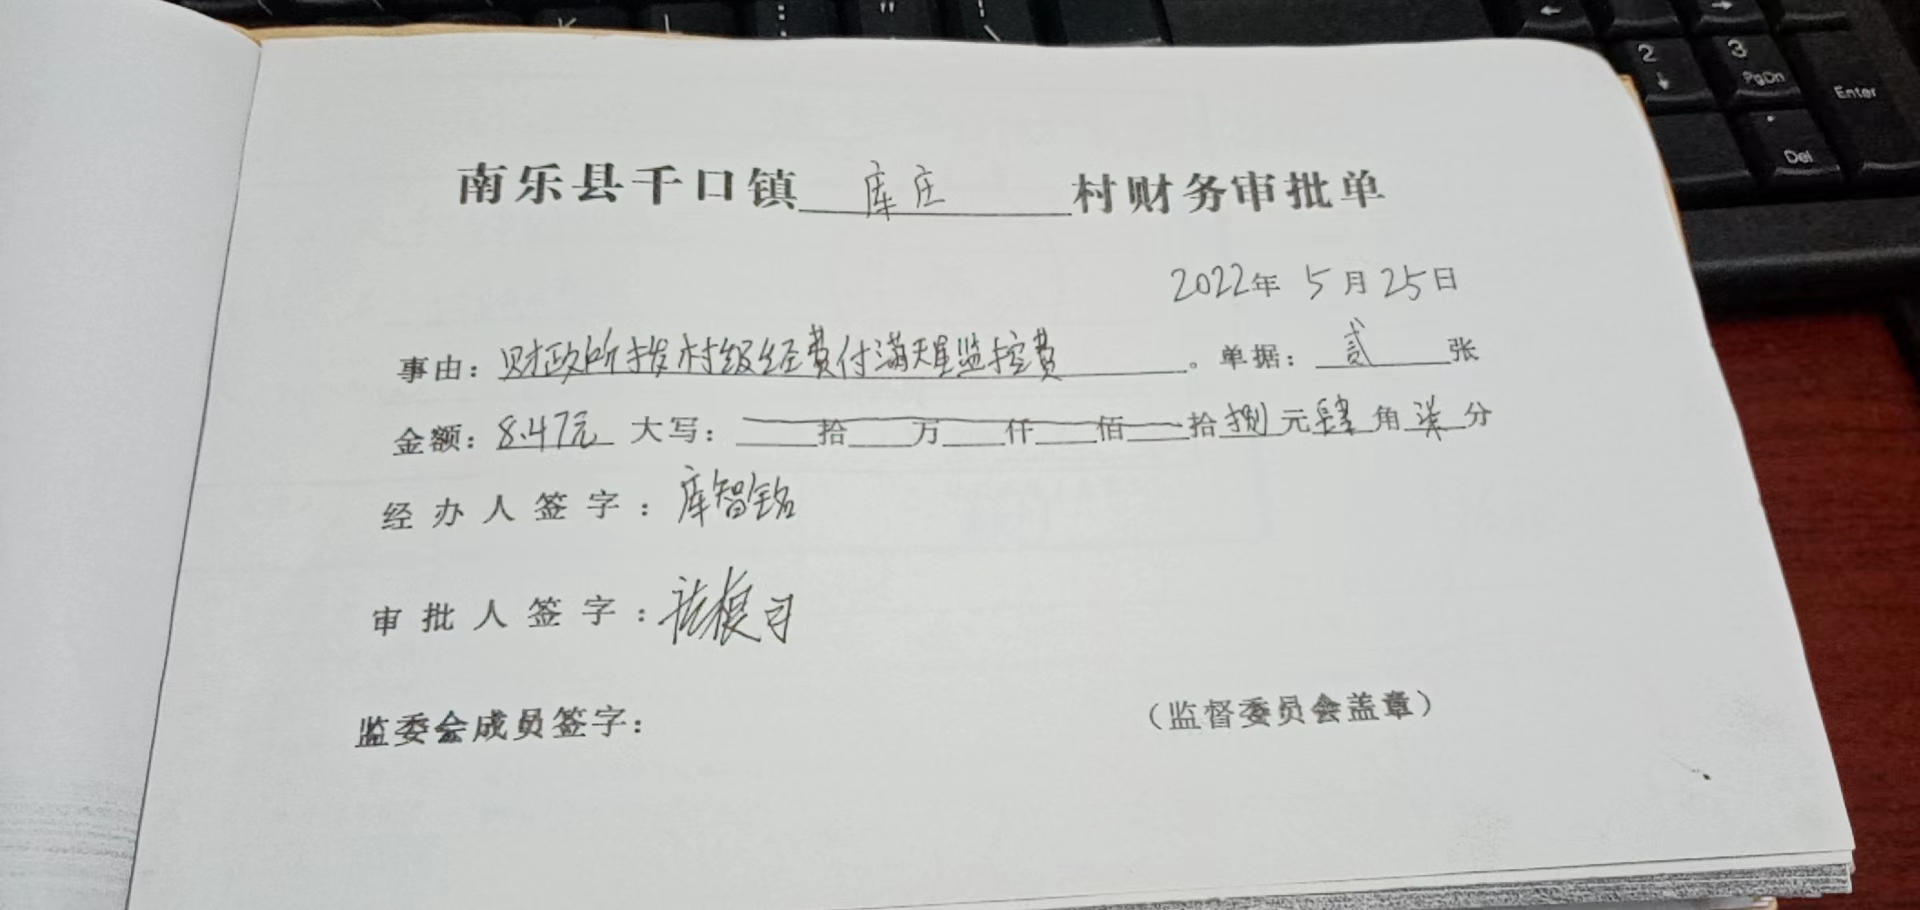 南乐县千口镇 库庄 村财务审批单
2022年 5月25日
事由：财政所拨村级经费付满天星监控费。单据：贰张
金额：8.47元 大写：拾万仟佰拾捌元肆角柒分
经办人签字：库智铭
审批人签字：
监委会成员签字：
（监督委员会盖章）
2
3
PgDn
Enter
Del